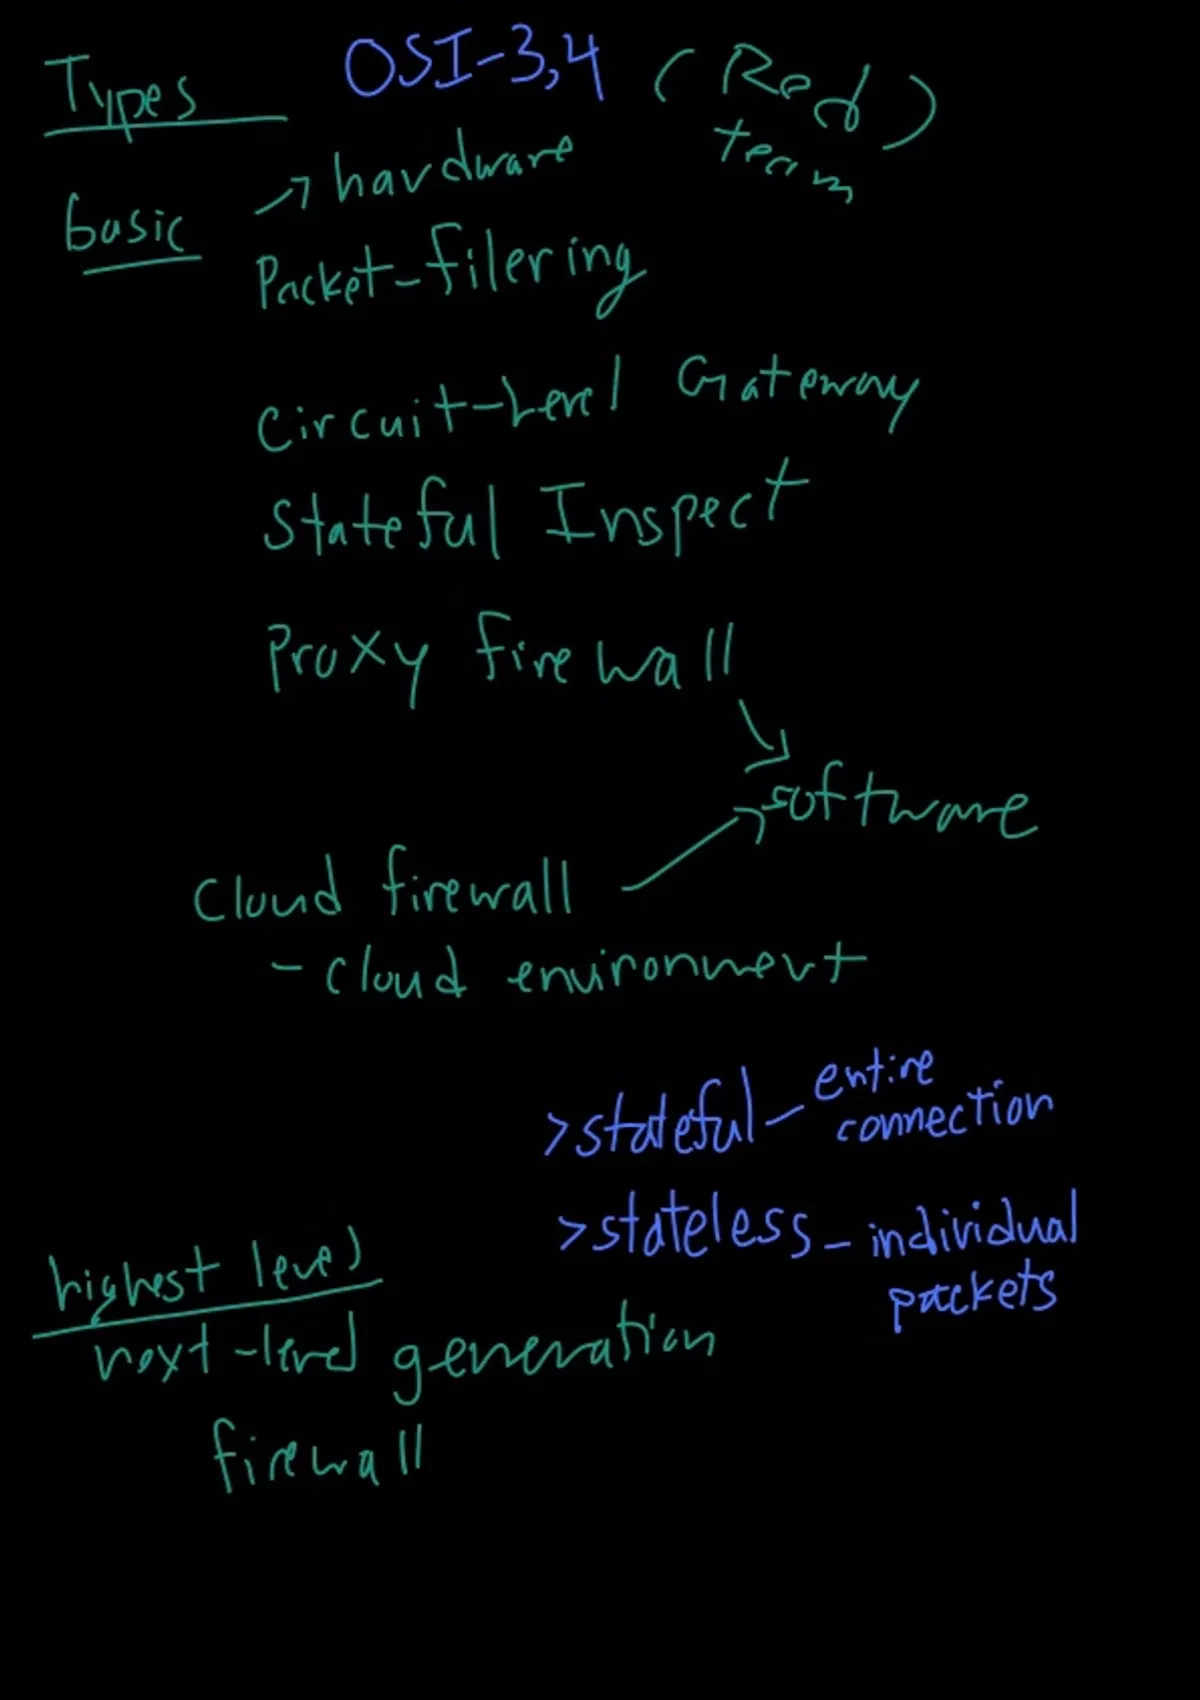 Types OSI-3,4 (Red team)
basic → hardware
Packet-filering
Circuit-Level Gateway
Stateful Inspect
Proxy firewall
software
Cloud firewall
- cloud environment
>stateful - entire connection
>stateless - individual packets
highest level
next-level generation
firewall